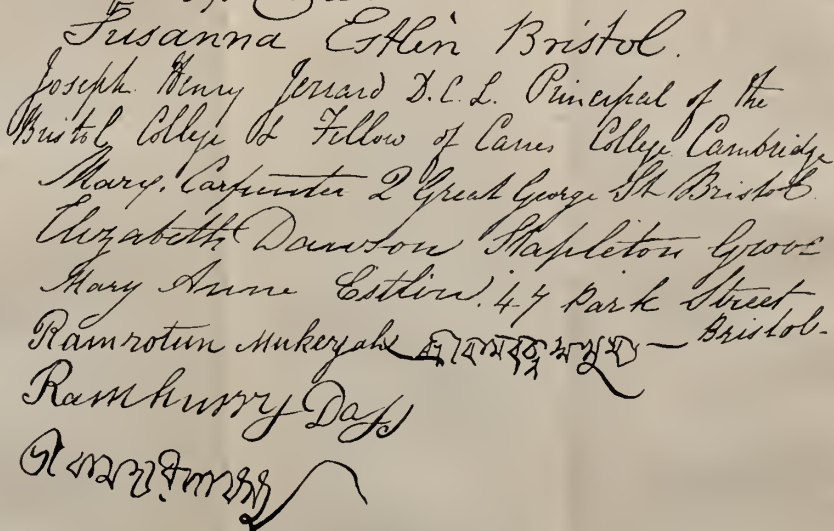 Susanna Estlin Bristol.
Joseph Henry Jerrard D.C.L. Principal of the
Bristol College & Fellow of Caius College Cambridge
Mary Carpenter 2 Great George St Bristol.
Elizabeth Dawson Stapleton Grove
Mary Anne Estlin. 47 Park Street
Bristol-
Ramrotun Mukerjah শ্রী রামরত্ন
Ramhurry Dass
শ্রী রামহরি দাস